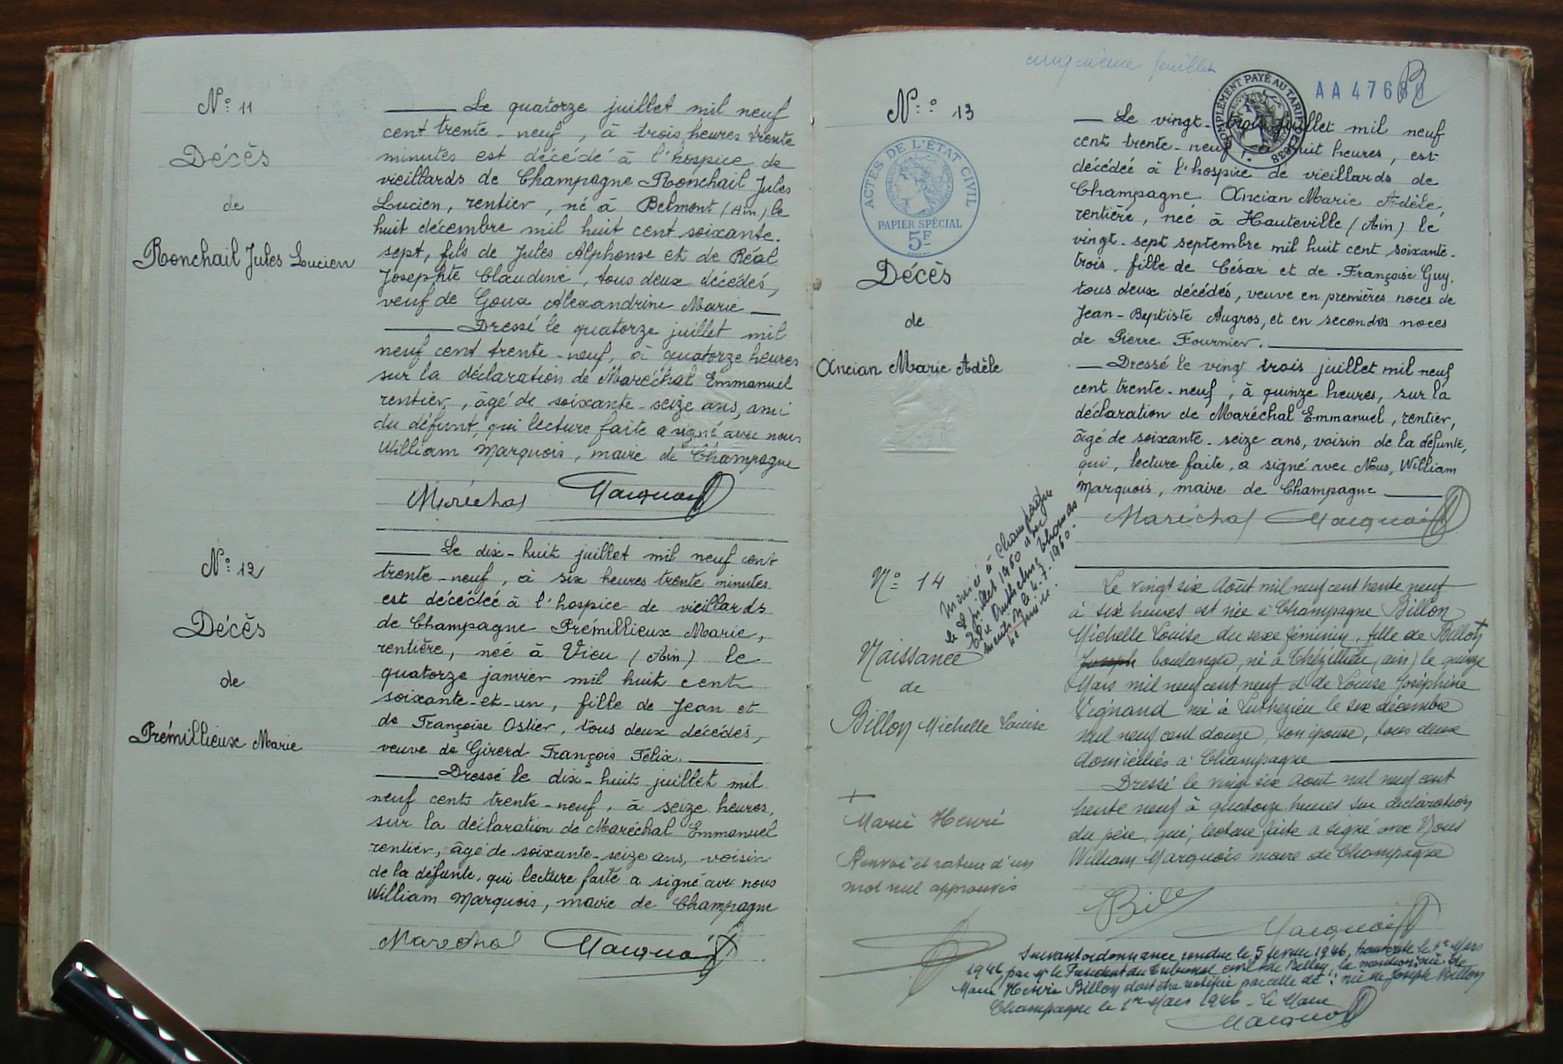 N° 11
Décès
de
Ronchail Jules Lucien
Le quatorze juillet mil neuf
cent trente-neuf, à trois heures trente
minutes est décédé à l'hospice de
vieillards de Champagne Ronchail Jules
Lucien, rentier, né à Belmont (Ain) le
huit décembre mil huit cent soixante-
sept, fils de Jules Alphonse et de Réal
Josephte Claudine, tous deux décédés,
veuf de Goux Alexandrine Marie
Dressé le quatorze juillet mil
neuf cent trente-neuf, à quatorze heures
sur la déclaration de Maréchal Emmanuel
rentier, âgé de soixante-seize ans, ami
du défunt, qui lecture faite a signé avec nous
William Marquois, maire de Champagne
Maréchal Marquois
N° 12
Décès
de
Prémillieux Marie
Le dix-huit juillet mil neuf cent
trente-neuf, à six heures trente minutes
est décédée à l'hospice de vieillards
de Champagne Prémillieux Marie,
rentière, née à Vieu (Ain) le
quatorze janvier mil huit cent
soixante-et-un, fille de Jean et
de Françoise Ostier, tous deux décédés,
veuve de Girerd François Félix.
Dressé le dix-huit juillet mil
neuf cent trente-neuf, à seize heures,
sur la déclaration de Maréchal Emmanuel
rentier, âgé de soixante-seize ans, voisin
de la défunte, qui lecture faite a signé avec nous
William Marquois, maire de Champagne
Maréchal Marquois
cinquième feuillet
COMPLÉMENT PAYÉ AU TARIF DE 1938
AA 476
N° 13
ACTES DE L'ÉTAT CIVIL
PAPIER SPÉCIAL
5F
Décès
de
Ancian Marie Adèle
Le vingt-trois juillet mil neuf
cent trente-neuf, à huit heures, est
décédée à l'hospice de vieillards de
Champagne. Ancian Marie Adèle,
rentière, née à Hauteville (Ain) le
vingt-sept septembre mil huit cent soixante-
trois, fille de César et de Françoise Guy.
tous deux décédés, veuve en premières noces de
Jean-Baptiste Augros, et en secondes noces
de Pierre Fournier.
Dressé le vingt trois juillet mil neuf
cent trente-neuf, à quinze heures, sur la
déclaration de Maréchal Emmanuel, rentier,
âgé de soixante-seize ans, voisin de la défunte,
qui, lecture faite, a signé avec Nous, William
Marquois, maire de Champagne
Maréchal Marquois
N° 14
Marié à Champagne
le juillet 1960 avec
Thomas
1960.
Naissance
de
Billon Michelle Louise
+
Marie Henri
Renvoi et rature d'un
mot nul approuvés
Le vingt six Août mil neuf cent trente neuf
à six heures est née à Champagne Billon
Michelle Louise du sexe féminin, fille de Billon +
Joseph boulanger, né à Thézillieu (ain) le quinze
Mars mil neuf cent neuf et de Louise Joséphine
Vignand née à Luthézieu le six décembre
mil neuf cent douze, son épouse, tous deux
domiciliés à Champagne
Dressé le vingt six Aout mil neuf cent
trente neuf à quatorze heures sur déclaration
du père, qui, lecture faite a signé avec Nous
William Marquois maire de Champagne
Billon
Marquois
Suivant ordonnance rendue le 5 février 1946, le 1er Mars
1946, par Mr le Président du Tribunal civil de Belley, la mention: de
Marie Henri Billon doit être rectifiée par celle de: de Joseph Billon
Champagne le 1er Mars 1946 - Le Maire
Marquois